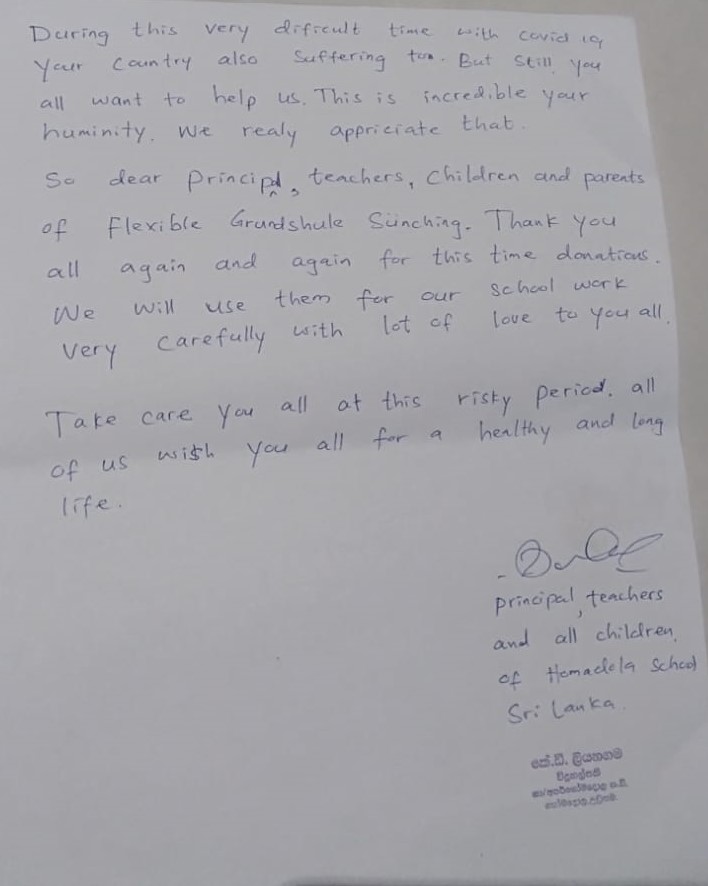 During this very dificult time with covid 19
your country also suffering too. But still you
all want to help us. This is incredible your
huminity. We realy appriciate that.
So dear principal, teachers, children and parents
of Flexible Grundshule Sünching. Thank you
all again and again for this time donations.
We will use them for our school work
very carefully with lot of love to you all.
Take care you all at this risky period. all
of us wish you all for a healthy and long
life.
principal, teachers
and all children,
of Homadola School
Sri Lanka.
විදුහල්පති